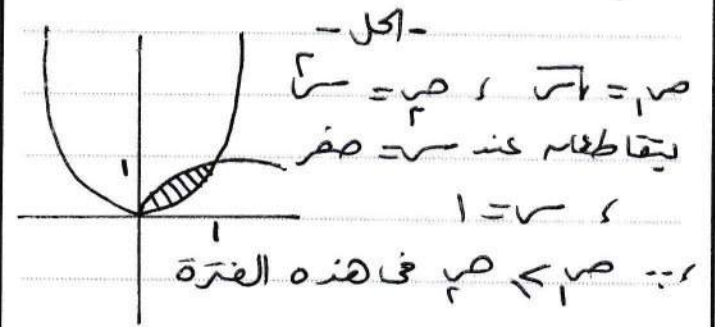 -الحل-
ص₁ = √س ، ص₂ = س²
يتقاطعان عند س = صفر
، س = ١
، ∵ ص₁ > ص₂ فى هذه الفترة
١
١